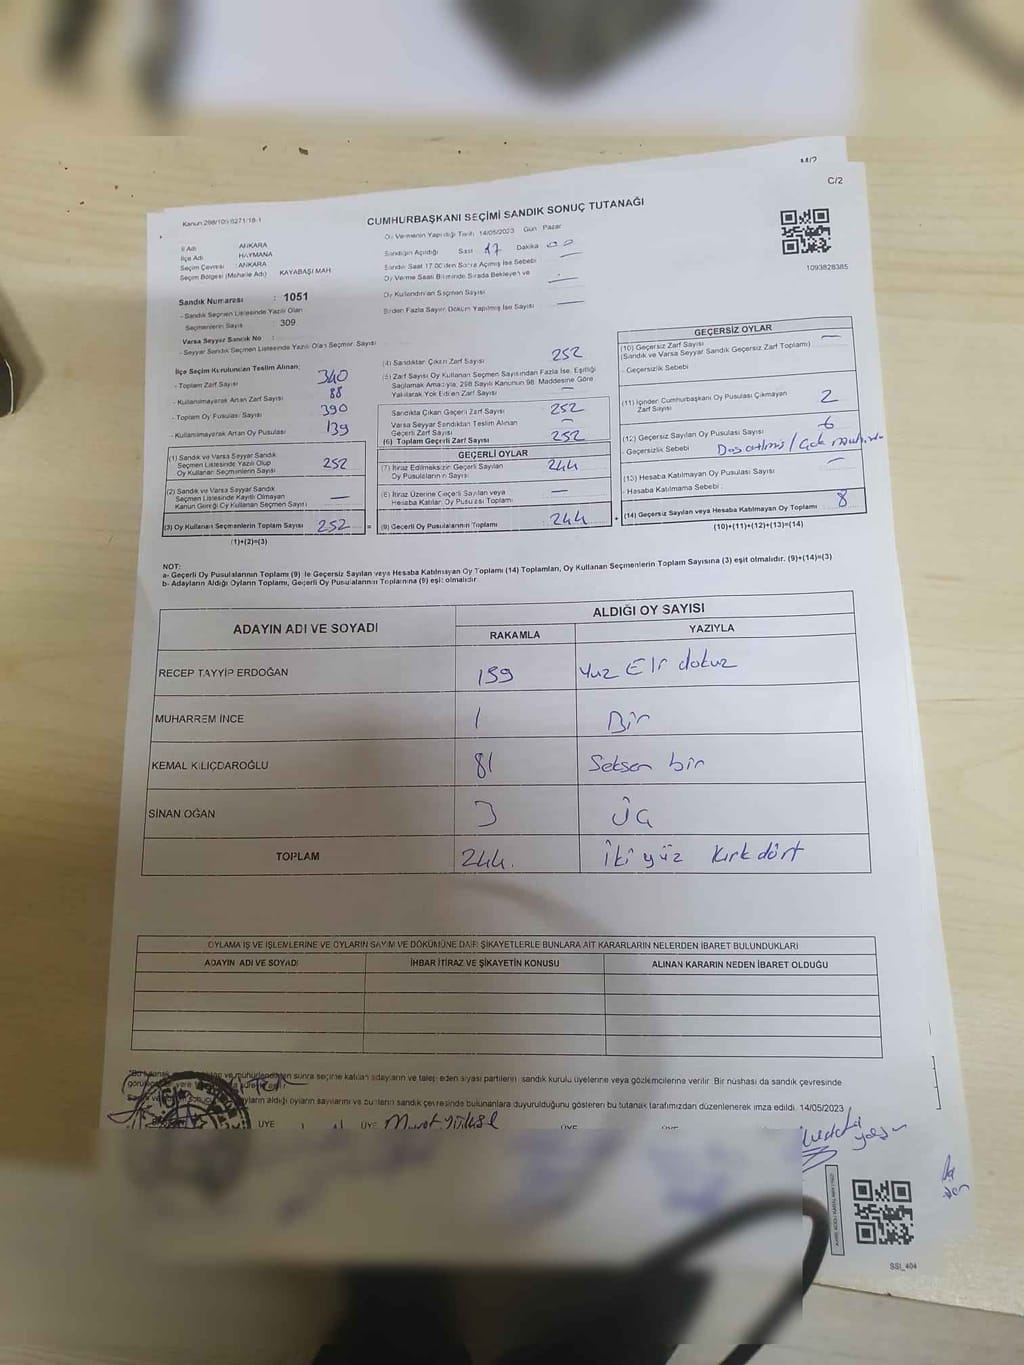 C/2
Kanun 298/105 6271/18-1
CUMHURBAŞKANI SEÇİMİ SANDIK SONUÇ TUTANAĞI
Oy Vermenin Yapıldığı Tarih 14/05/2023 Gün Pazar
İl Adı ANKARA
İlçe Adı HAYMANA
Seçim Çevresi ANKARA
Seçim Bölgesi (Mahalle Adı) KAYABAŞI MAH
Sandığın Açıldığı Saat 17 Dakika 00
Sandık Saat 17.00'den Sonra Açılmış İse Sebebi
Oy Verme Saati Bitiminde Sırada Bekleyen ve
Oy Kullandırılan Seçmen Sayısı
Birden Fazla Sayım Döküm Yapılmış İse Sayısı
1093828385
Sandık Numarası : 1051
- Sandık Seçmen Listesinde Yazılı Olan
Seçmenlerin Sayısı : 309
Varsa Seyyar Sandık No :
- Seyyar Sandık Seçmen Listesinde Yazılı Olan Seçmen Sayısı
İlçe Seçim Kurulundan Teslim Alınan;
- Toplam Zarf Sayısı 340
- Kullanılmayarak Artan Zarf Sayısı 88
- Toplam Oy Pusulası Sayısı 390
- Kullanılmayarak Artan Oy Pusulası 139
(1) Sandık ve Varsa Seyyar Sandık
Seçmen Listesinde Yazılı Olup
Oy Kullanan Seçmenlerin Sayısı 252
(2) Sandık ve Varsa Seyyar Sandık
Seçmen Listesinde Kayıtlı Olmayan
Kanun Gereği Oy Kullanan Seçmen Sayısı —
(3) Oy Kullanan Seçmenlerin Toplam Sayısı 252 =
(1)+(2)=(3)
(4) Sandıktan Çıkan Zarf Sayısı 252
(5) Zarf Sayısı Oy Kullanan Seçmen Sayısından Fazla İse, Eşitliği
Sağlamak Amacıyla, 298 Sayılı Kanunun 98. Maddesine Göre
Yakılarak Yok Edilen Zarf Sayısı —
Sandıkta Çıkan Geçerli Zarf Sayısı 252
Varsa Seyyar Sandıktan Teslim Alınan
Geçerli Zarf Sayısı —
(6) Toplam Geçerli Zarf Sayısı 252
GEÇERLİ OYLAR
(7) İtiraz Edilmeksizin Geçerli Sayılan
Oy Pusulalarının Sayısı 244
(8) İtiraz Üzerine Geçerli Sayılan veya
Hesaba Katılan Oy Pusulası Toplamı —
(9) Geçerli Oy Pusulalarının Toplamı : 244 +
GEÇERSİZ OYLAR
(10) Geçersiz Zarf Sayısı —
(Sandık ve Varsa Seyyar Sandık Geçersiz Zarf Toplamı)
- Geçersizlik Sebebi
(11) İçinden Cumhurbaşkanı Oy Pusulası Çıkmayan
Zarf Sayısı 2
(12) Geçersiz Sayılan Oy Pusulası Sayısı 6
- Geçersizlik Sebebi
(13) Hesaba Katılmayan Oy Pusulası Sayısı —
- Hesaba Katılmama Sebebi :
(14) Geçersiz Sayılan veya Hesaba Katılmayan Oy Toplamı 8
(10)+(11)+(12)+(13)=(14)
NOT:
a- Geçerli Oy Pusulalarının Toplamı (9) ile Geçersiz Sayılan veya Hesaba Katılmayan Oy Toplamı (14) Toplamları, Oy Kullanan Seçmenlerin Toplam Sayısına (3) eşit olmalıdır. (9)+(14)=(3)
b- Adayların Aldığı Oyların Toplamı, Geçerli Oy Pusulalarının Toplamına (9) eşit olmalıdır
ADAYIN ADI VE SOYADI
ALDIĞI OY SAYISI
RAKAMLA YAZIYLA
RECEP TAYYİP ERDOĞAN 159 Yuz Elli dokuz
MUHARREM İNCE 1 Bir
KEMAL KILIÇDAROĞLU 81 Seksen bir
SİNAN OĞAN 3 Üç
TOPLAM 244. İki yüz kırk dört
OYLAMA İŞ VE İŞLEMLERİNE VE OYLARIN SAYIM VE DÖKÜMÜNE DAİR ŞİKAYETLERLE BUNLARA AİT KARARLARIN NELERDEN İBARET BULUNDUKLARI
ADAYIN ADI VE SOYADI İHBAR İTİRAZ VE ŞİKAYETİN KONUSU ALINAN KARARIN NEDEN İBARET OLDUĞU
sonra seçime katılan adayların ve talep eden siyasi partilerin sandık kurulu üyelerine veya gözlemcilerine verilir. Bir nüshası da sandık çevresinde
adayların aldığı oyların sayılarını ve bunların sandık çevresinde bulunanlara duyurulduğunu gösteren bu tutanak tarafımızdan düzenlenerek imza edildi. 14/05/2023
ÜYE ÜYE Murat Yüksel ÜYE
SSI_404